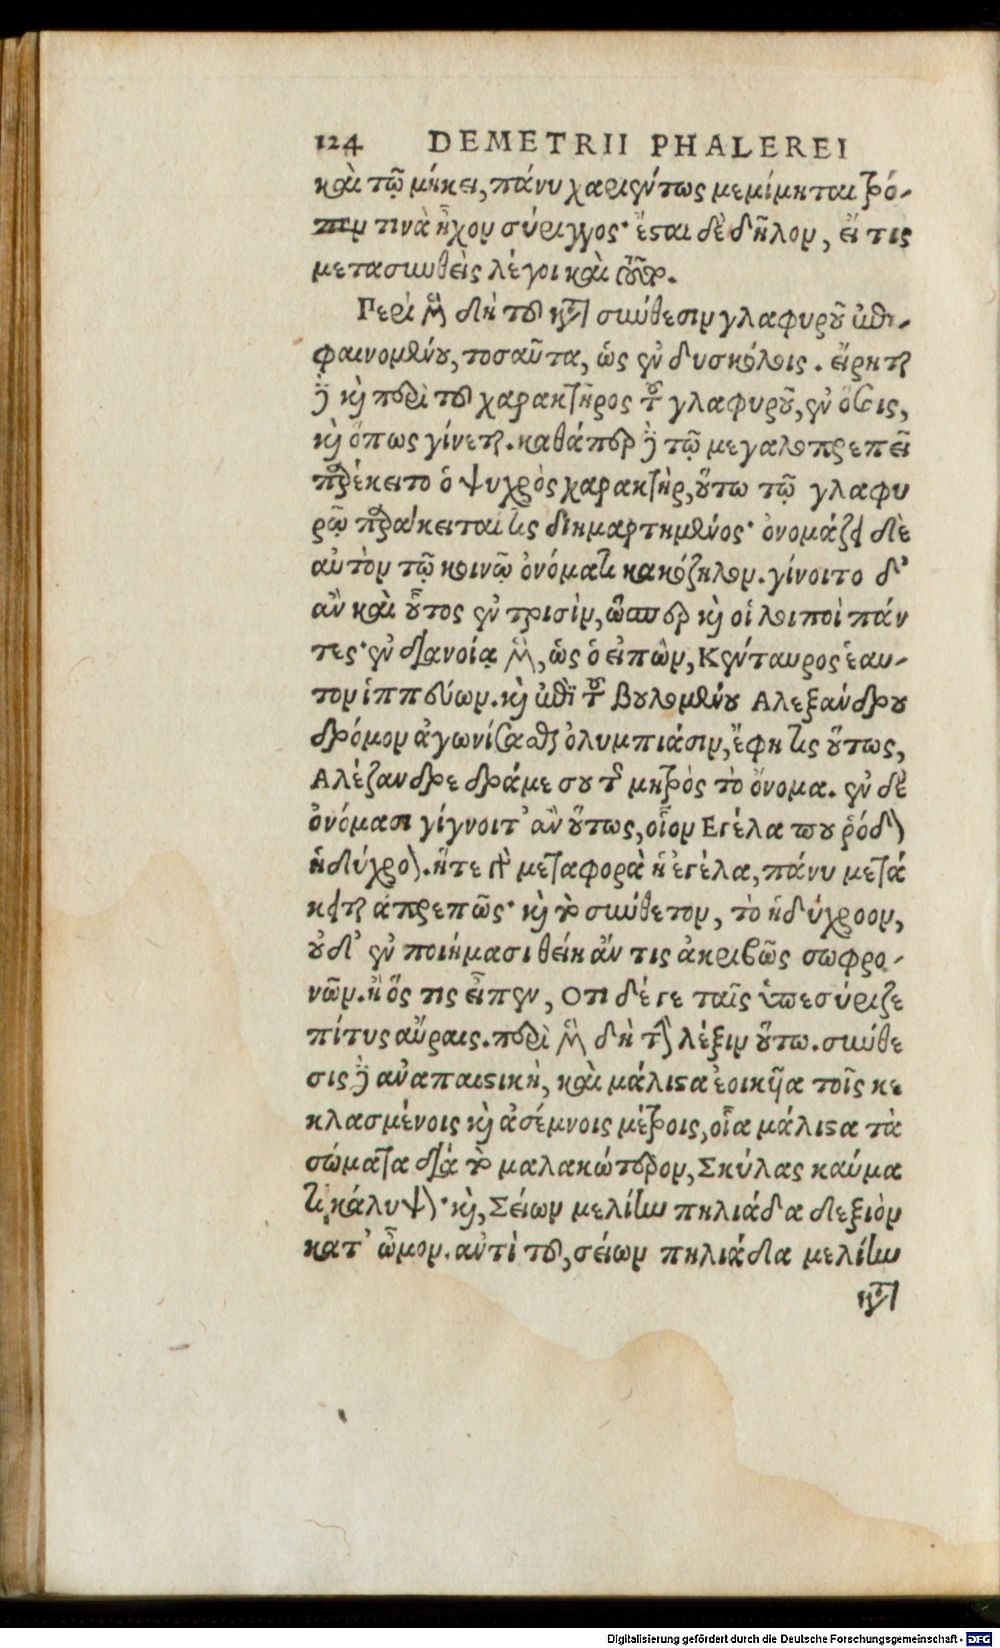 124 DEMETRII PHALEREI
καὶ τῷ μήκει, πάνυ χαριέντως μεμίμηται τρό-
πον τινὰ ἦχον σύριγγος· ἔσται δὲ δῆλον, εἴ τις
μετασυνθεὶς λέγοι καὶ
Περὶ μὲν δὴ τοῦ κατὰ σύνθεσιν γλαφυροῦ ἐπι-
φαινομένου, τοσαῦτα, ὡς ἐν δυσκόλοις. εἴρηται
δὲ καὶ περὶ τοῦ χαρακτῆρος τοῦ γλαφυροῦ, ἐν ὅσοις,
καὶ ὅπως γίνεται. καθάπερ δὲ τῷ μεγαλοπρεπεῖ
παρέκειτο ὁ ψυχρὸς χαρακτὴρ, οὕτω τῷ γλαφυ
ρῷ παράκειταί τις διημαρτημένος· ὀνομάζω δὲ
αὐτὸν τῷ κοινῷ ὀνόματι κακόζηλον. γίνοιτο δ'
ἂν καὶ οὗτος ἐν τρισὶν, ὥσπερ καὶ οἱ λοιποὶ πάν
τες· ἐν διανοίᾳ μὲν, ὡς ὁ εἰπὼν, Κένταυρος ἑαυ-
τὸν ἱππεύων. καὶ ἐπὶ τοῦ βουλομένου Αλεξάνδρου
δρόμον ἀγωνίσασθαι ὀλυμπιάσιν, ἔφη τις οὕτως,
Αλέξανδρε δράμε σου τῆς μητρὸς τὸ ὄνομα. ἐν δὲ
ὀνόμασι γίγνοιτ' ἂν οὕτως, οἷον Εγέλα που ῥόδον
ἡδύχροον. ἥτε γὰρ μεταφορὰ ἡ ἐγέλα, πάνυ μετά
κειται ἀπρεπῶς· καὶ τὸ σύνθετον, τὸ ἡδύχροον,
οὐδ' ἐν ποιήμασι θείη ἄν τις ἀκριβῶς σωφρο-
νῶν. ἢ ὅς τις εἶπεν, Οτι δέ γε ταῖς ὑπεσύριζε
πίτυς αὔραις. περὶ μὲν δὴ τὴν λέξιν οὕτω. σύνθε
σις δὲ ἀναπαιστικὴ, καὶ μάλιστα ἐοικυῖα τοῖς κε
κλασμένοις καὶ ἀσέμνοις μέτροις, οἷα μάλιστα τὰ
σώματα διὰ τὸ μαλακώτερον, Σκύλας καύμα
τι κάλυψον· καὶ, Σείων μελίην πηλιάδα δεξιὸν
κατ' ὦμον. ἀντὶ τοῦ, σείων πηλιάδα μελίην
κατὰ
Digitalisierung gefördert durch die Deutsche Forschungsgemeinschaft - DFG